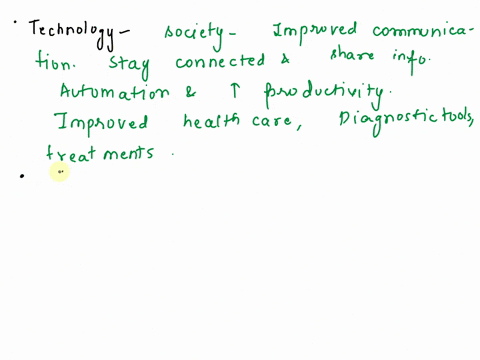 • Technology – society – Improved communica-
tion. Stay connected & share info.
Automation & ↑ productivity.
Improved health care, Diagnostic tools,
treatments.
•